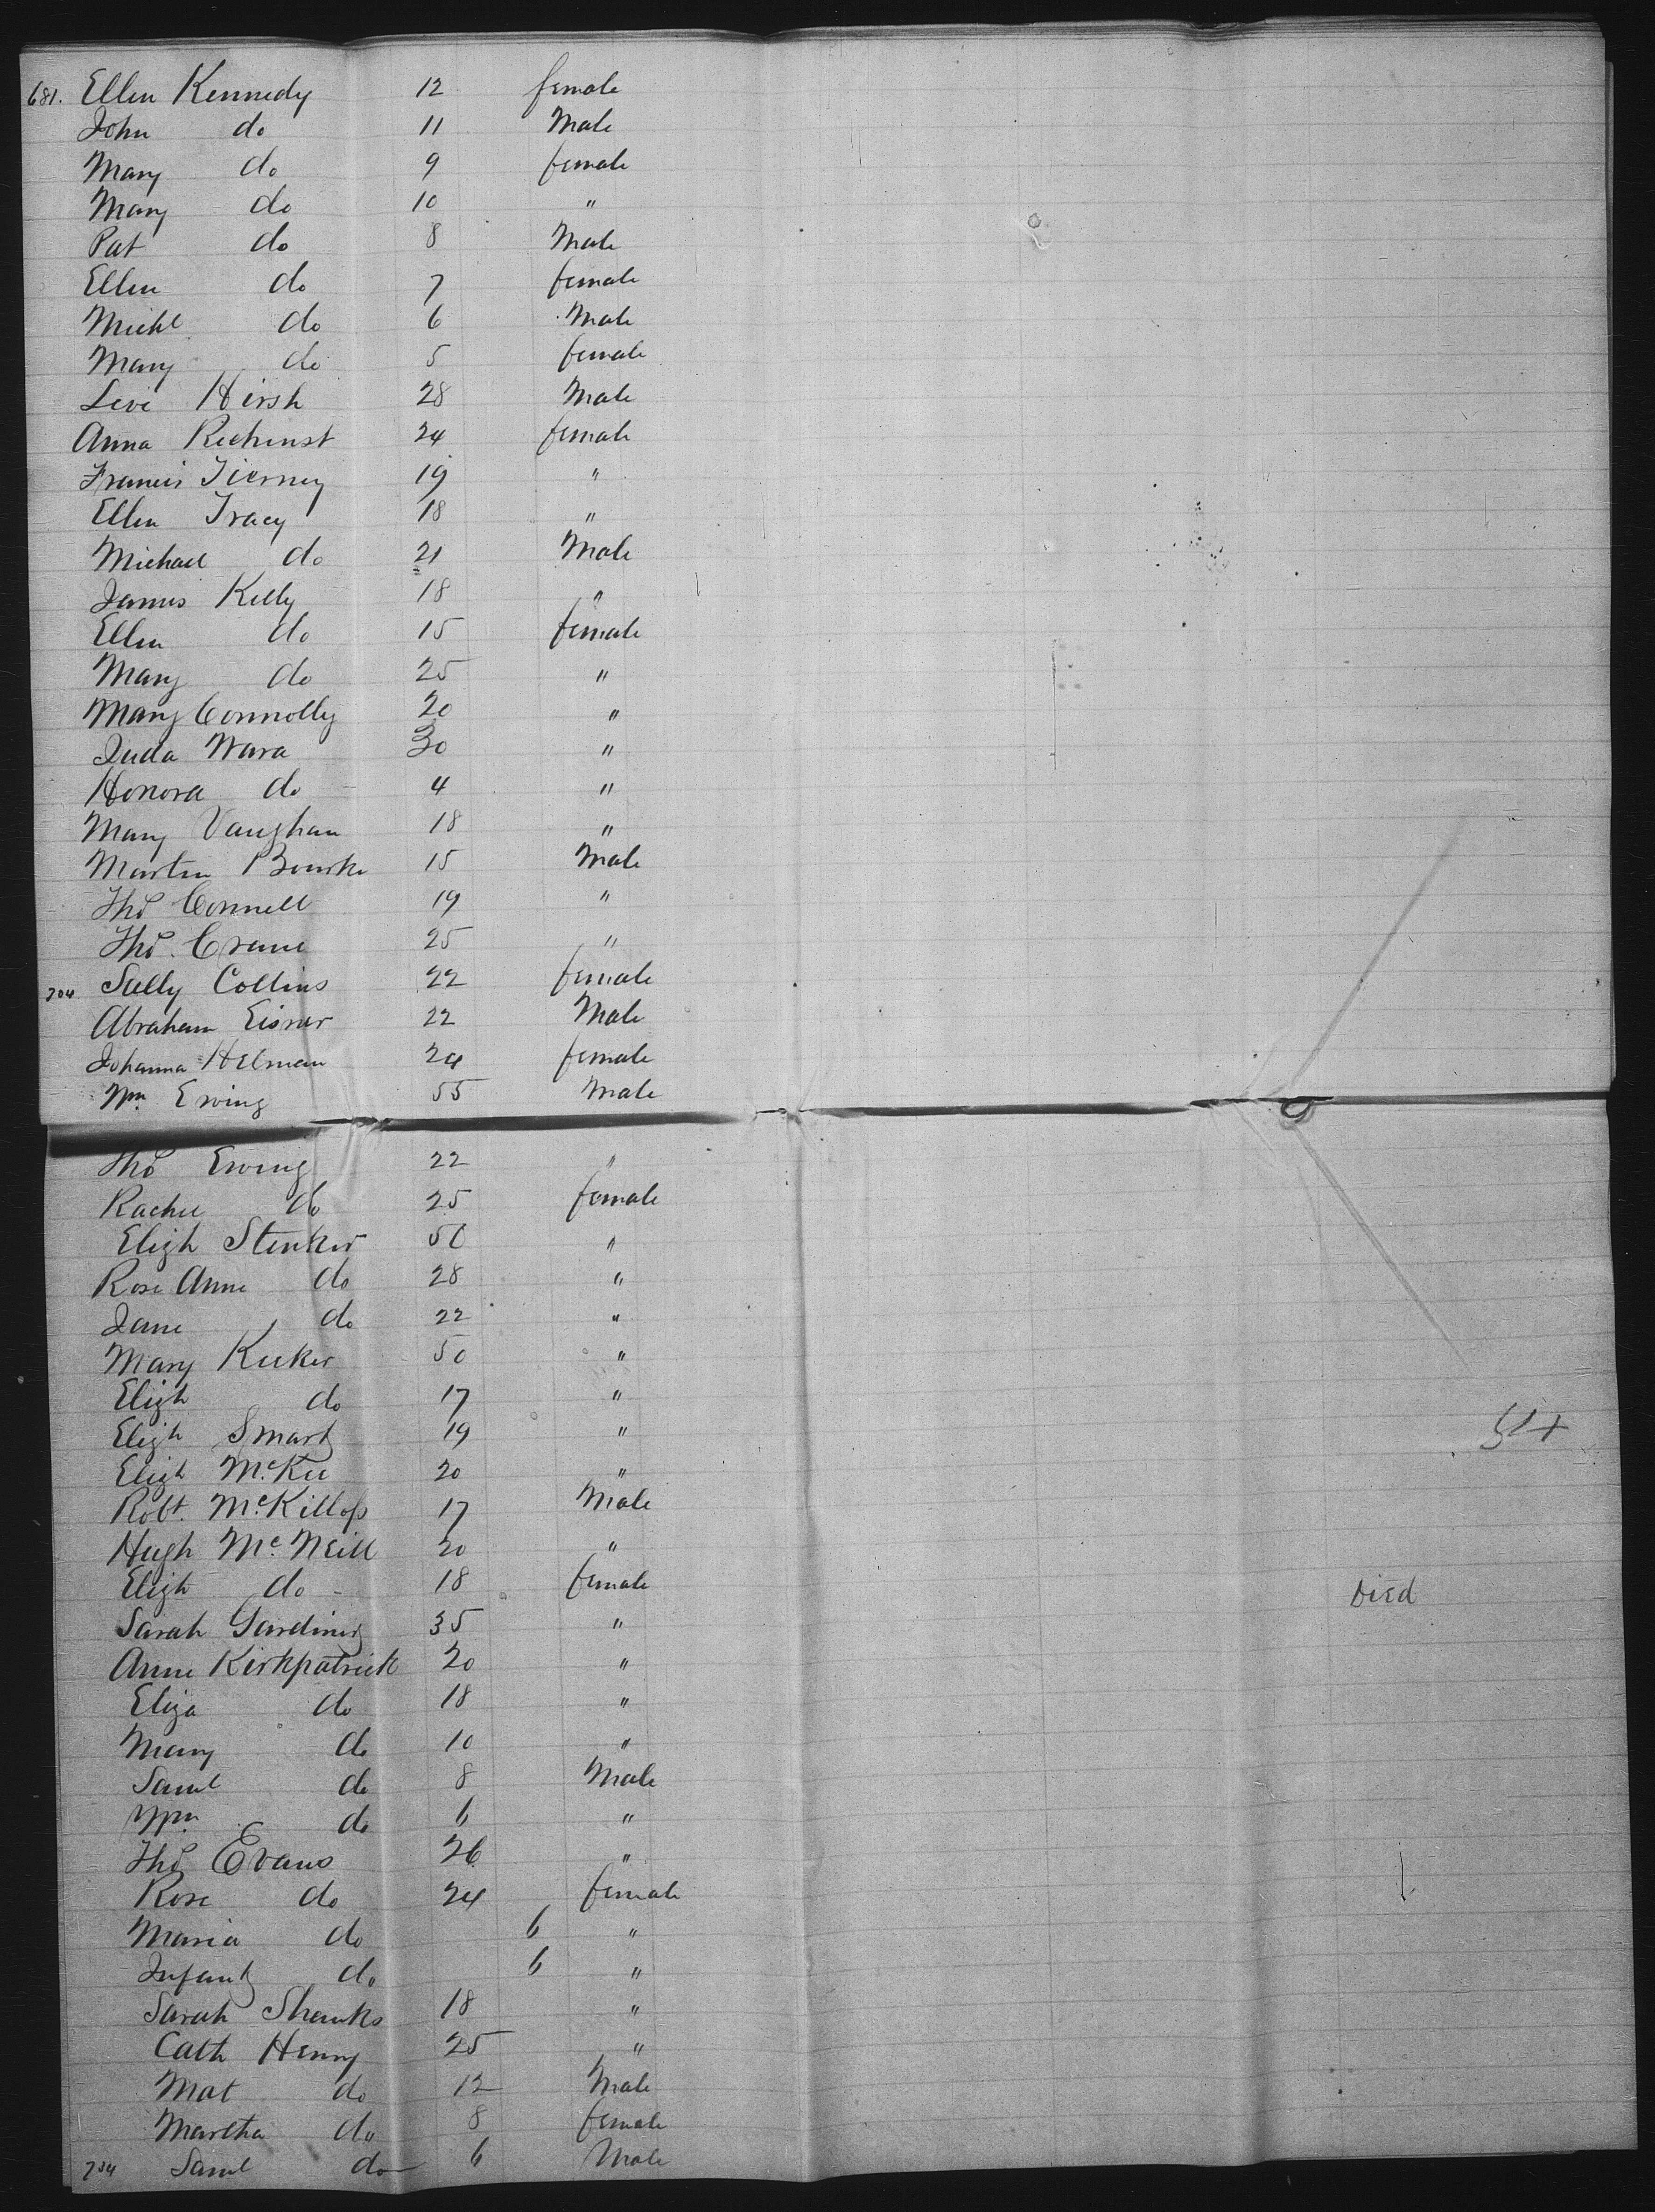 681. Ellen Kennedy 12 female
John do 11 Male
Mary do 9 female
Mary do 10 "
Pat do 8 Male
Ellen do 7 female
Michl do 6 Male
Mary do 5 female
Levi Hirsh 28 Male
Anna Richinst 24 female
Francis Tierney 19 "
Ellen Tracy 18 "
Michael do 21 Male
James Kelly 18 "
Ellen do 15 female
Mary do 25 "
Mary Connolly 20 "
Juda Wara 30 "
Honora do 4 "
Mary Vaughan 18 "
Martin Bourke 15 Male
Thos Connell 19 "
Thos. Crane 25 "
704 Sally Collins 22 female
Abraham Eisner 22 Male
Johanna Helman 24 female
Wm Ewing 55 Male
Thos Ewing 22 "
Rachel do 25 female
Elizh Stenker 50 "
Rose Anne do 28 "
Jane do 22 "
Mary Keeker 50 "
Elizh do 17 "
Elizh Smart 19 "
Elizh McKee 20 "
Robt. McKillop 17 Male
Hugh McNeill 20 "
Elizh do 18 female Died
Sarah Gardiner 35 "
Anne Kirkpatrick 20 "
Eliza do 18 "
Mary do 10 "
Saml do 8 Male
Wm do 6 "
Thos Evans 26 "
Rose do 24 female
Maria do 6 "
Infant do 6 "
Sarah Shanks 18 "
Cath Henry 25 "
Mat do 12 Male
Martha do 8 female
734 Saml do 6 Male